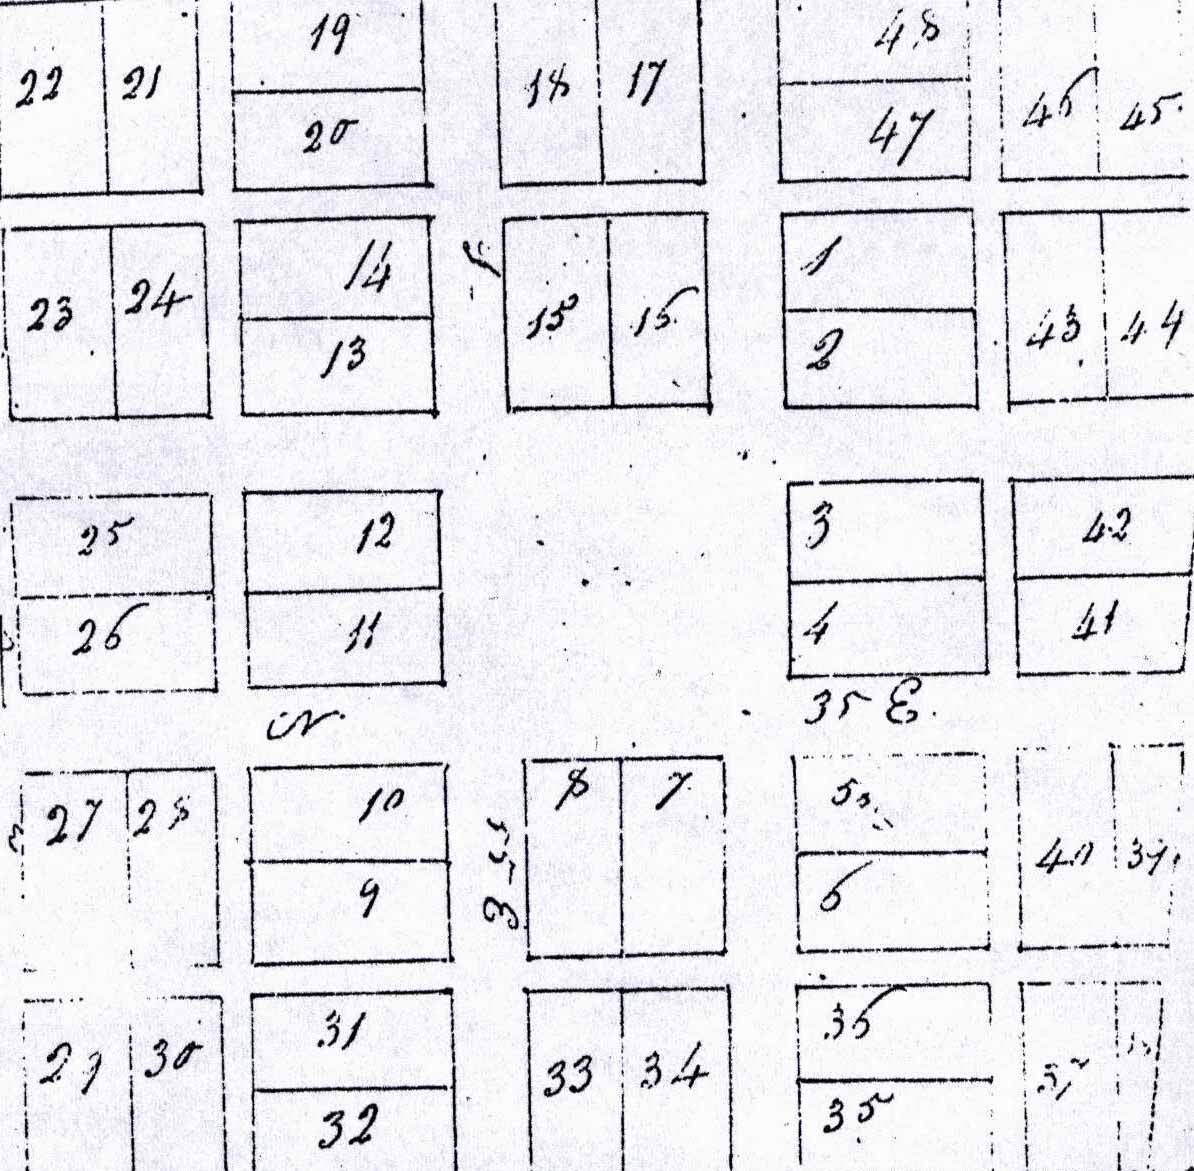 19 48
22 21 18 17 46 45
20 47
14 1
23 24 15 16 43 44
13 2
25 12 3 42
26 11 4 41
N. 35 E.
27 28 10 8 7 5 40 39
9 6
31 36
29 30 33 34 37
32 35